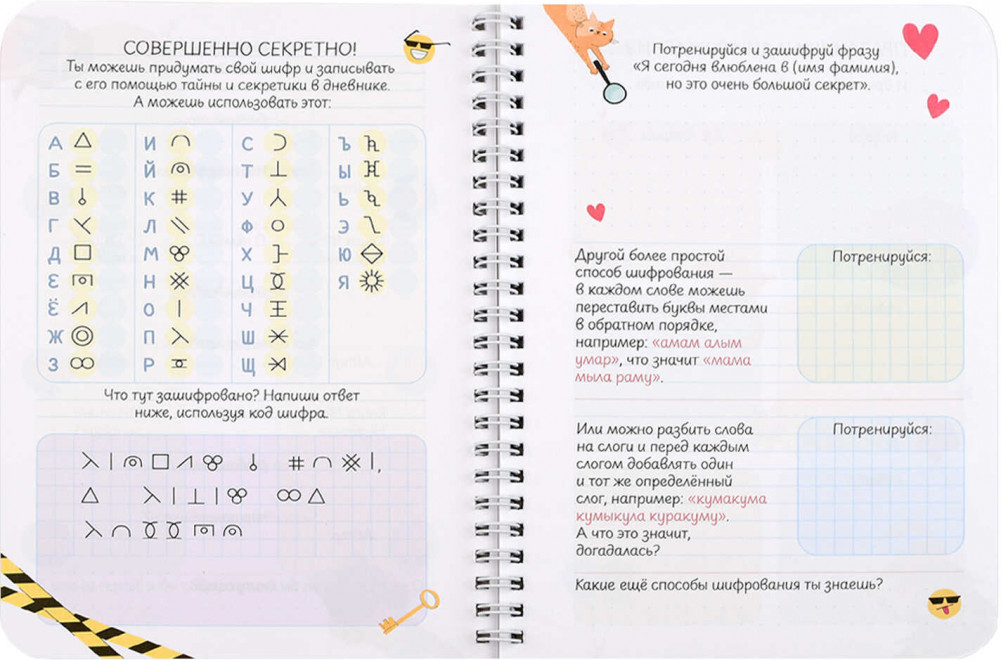 СОВЕРШЕННО СЕКРЕТНО!
Ты можешь придумать свой шифр и записывать
с его помощью тайны и секретики в дневнике.
А можешь использовать этот:
А И С Ъ
Б Й Т Ы
В К У Ь
Г Л Ф Э
Д М Х Ю
Е Н Ц Я
Ё О Ч
Ж П Ш
З Р Щ
Что тут зашифровано? Напиши ответ
ниже, используя код шифра.
Потренируйся и зашифруй фразу
«Я сегодня влюблена в (имя фамилия),
но это очень большой секрет».
Другой более простой
способ шифрования —
в каждом слове можешь
переставить буквы местами
в обратном порядке,
например: «амам алым
умар», что значит «мама
мыла раму».
Потренируйся:
Или можно разбить слова
на слоги и перед каждым
слогом добавлять один
и тот же определённый
слог, например: «кумакума
кумыкула куракуму».
А что это значит,
догадалась?
Потренируйся:
Какие ещё способы шифрования ты знаешь?